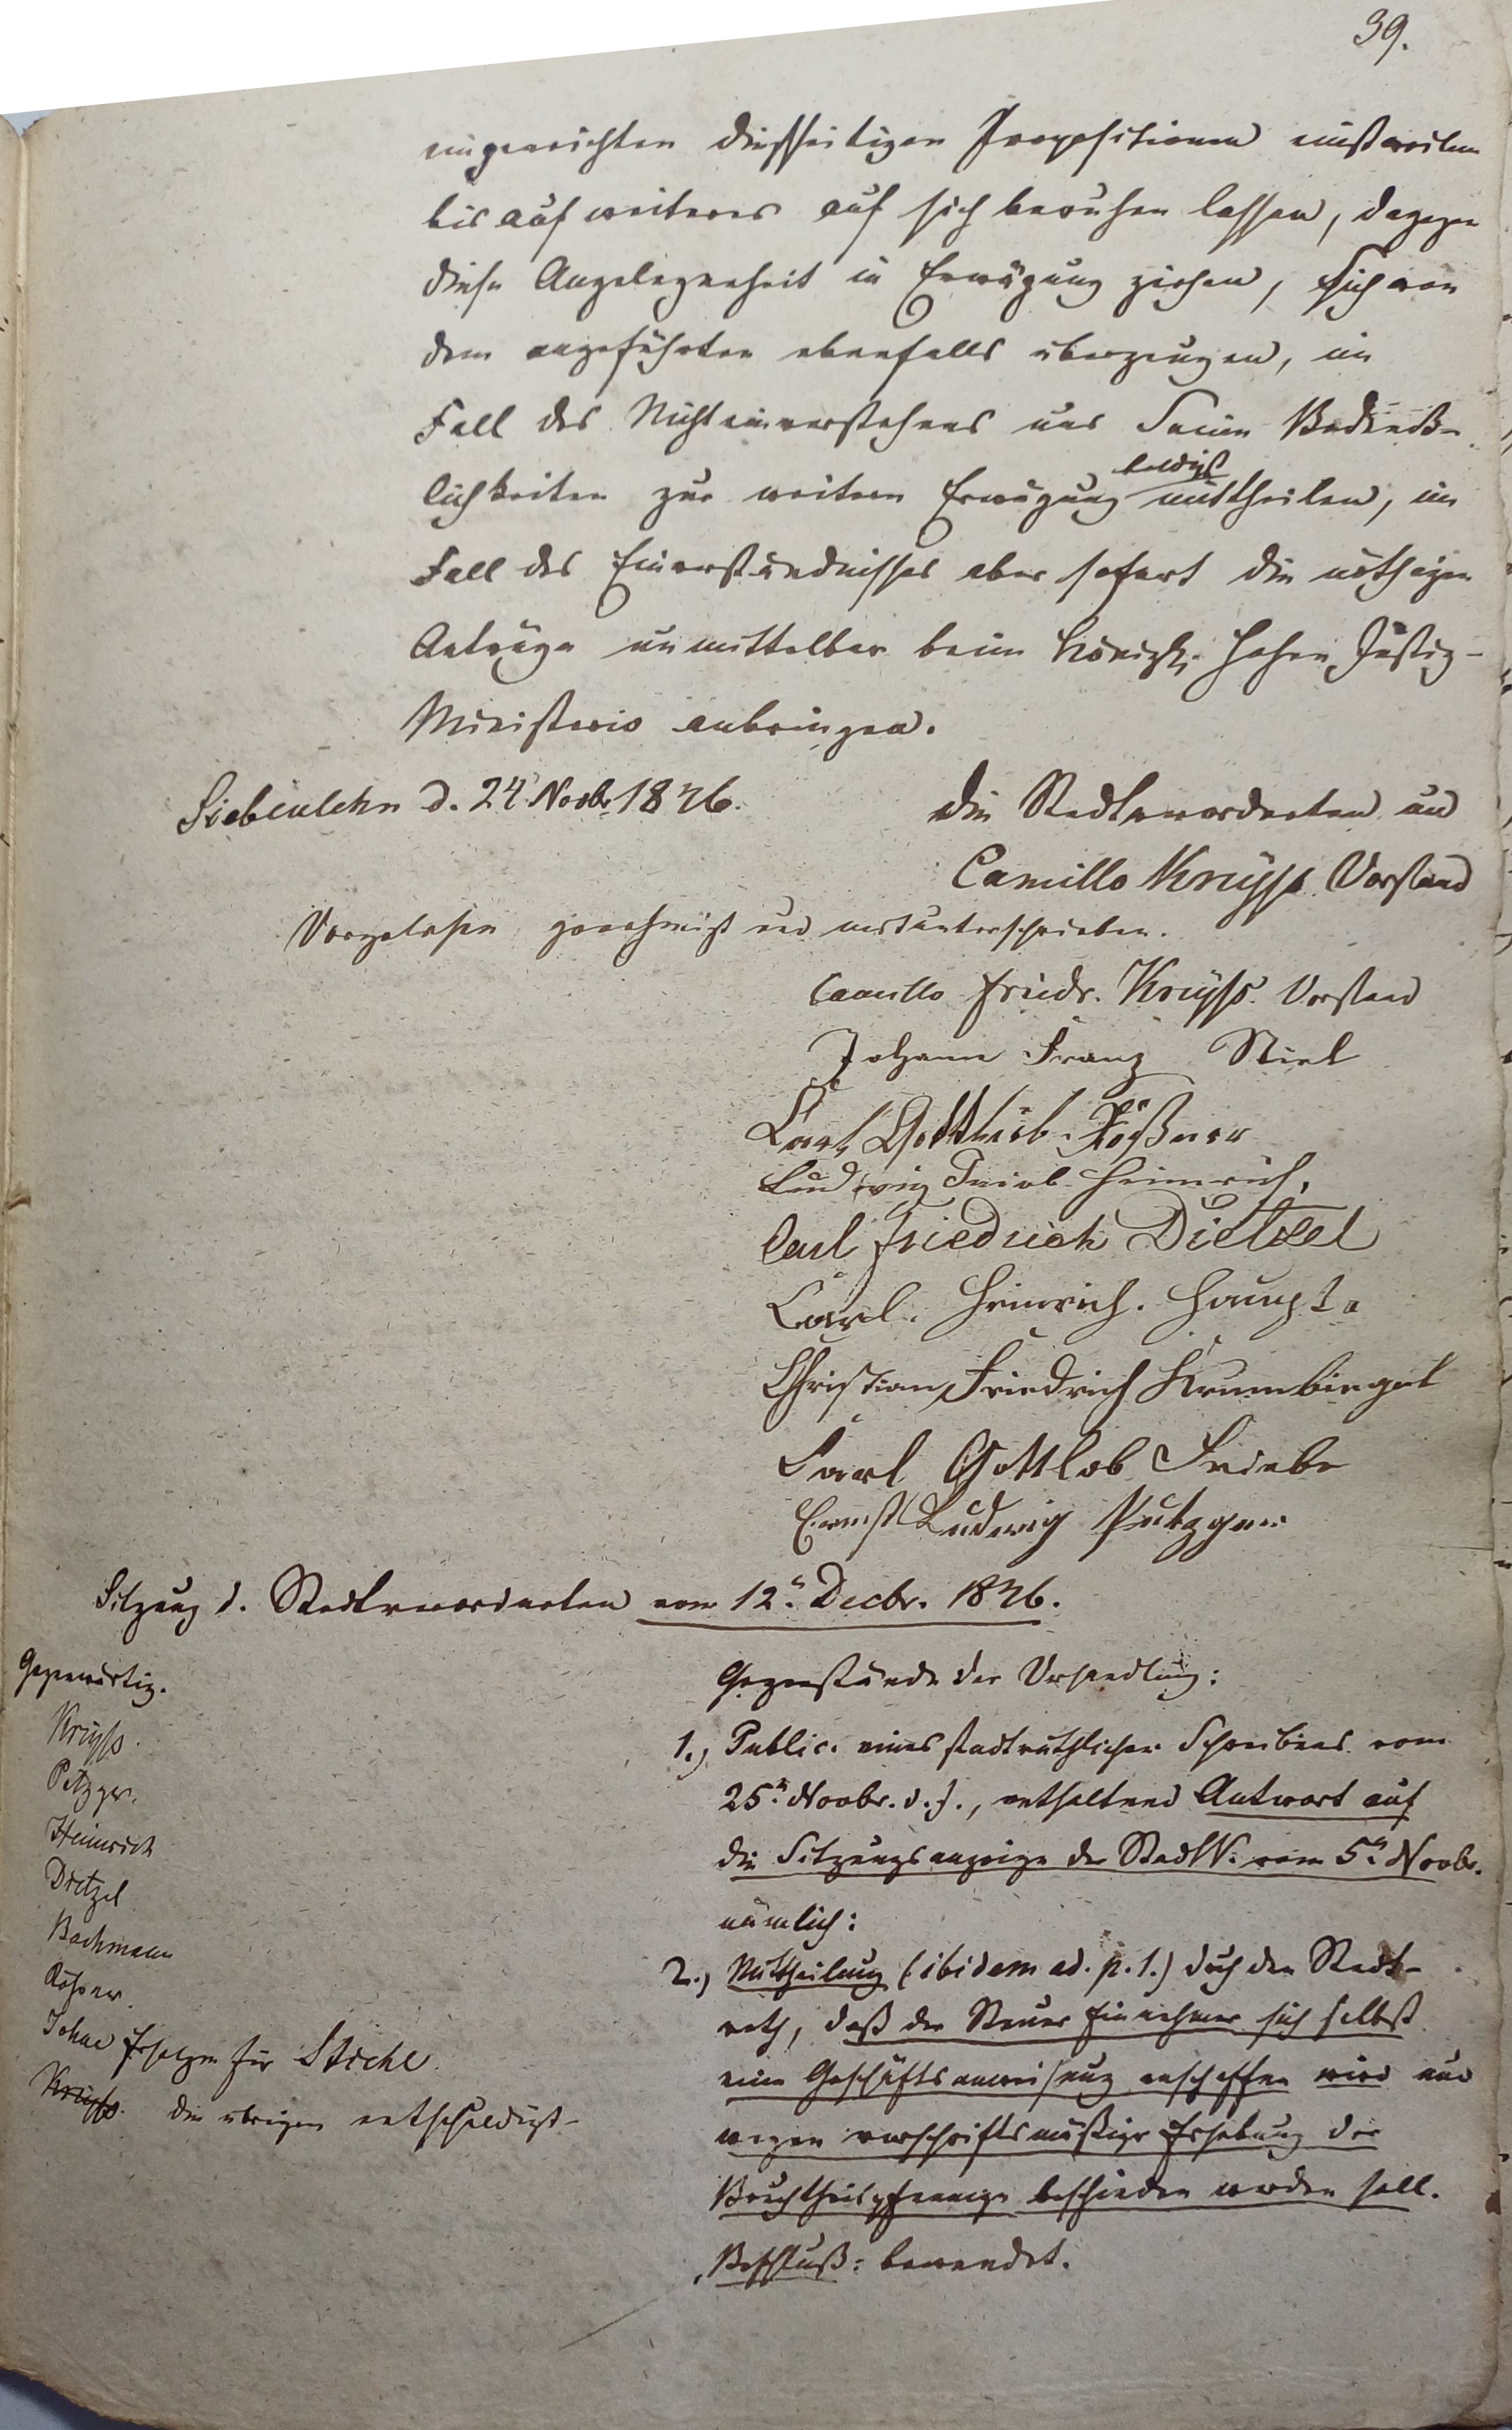 39.
eingereichten diesseitigen Propositionen einstweilen
bis auf weiteres auf sich beruhen lassen, dagegen
diese Angelegenheit in Erwägung ziehen, sich von
dem angeführten ebenfalls überzeugen, im
Fall des Nichteinverstehens uns Seine Bedenk-
lichkeiten zur weitern Erwägung baldigst mittheilen, im
Fall des Einverständnisses aber sofort die nöthigen
Anträge unmittelbar beim Königl. hohen Justiz-
Ministerio anbringen.
Siebenlehn d. 24. Novbr. 1846.
die Stadtverordneten und
Camillo Kreyß Vorstand
Vorgelesen genehmigt und mitunterschrieben.
Camillo Friedr. Kreyß. Vorstand
Johann Franz
Carl Gottlieb Rößner
Ludwig Heinrich.
Carl Friedrich Dietzel
Carl. Heinrich. Haupt.
Christian Friedrich Krumbiegel
Carl Gottlob Triebe
Ernst Ludwig Putzger
Sitzung d. Stadtverordneten vom 12. Decbr. 1846.
Gegenwärtig.
Kreyß.
Putzger.
Heinrich
Dietzel
Bachmann
Rößner.
John Ersatzm für
Kreyß. die übrigen entschuldigt
Gegenstände der Verhandlung:
1.) Public. eines stadträthlichen Schreibens vom
25. Novbr. d. J., enthaltend Antwort auf
die Sitzungsanzeige der StadtV. vom 5. Novbr.
nämlich:
2.) Mittheilung (ibidem ad. p. 1.) durch den Stadt-
rath, daß der Steuer Einnehmer sich selbst
eine Geschäftsanweisung anschaffen wird und
wegen vorschriftsmäßiger Erhebung der
Bruchtheilpfennige beschieden werden soll.
Beschluß: bewendet.